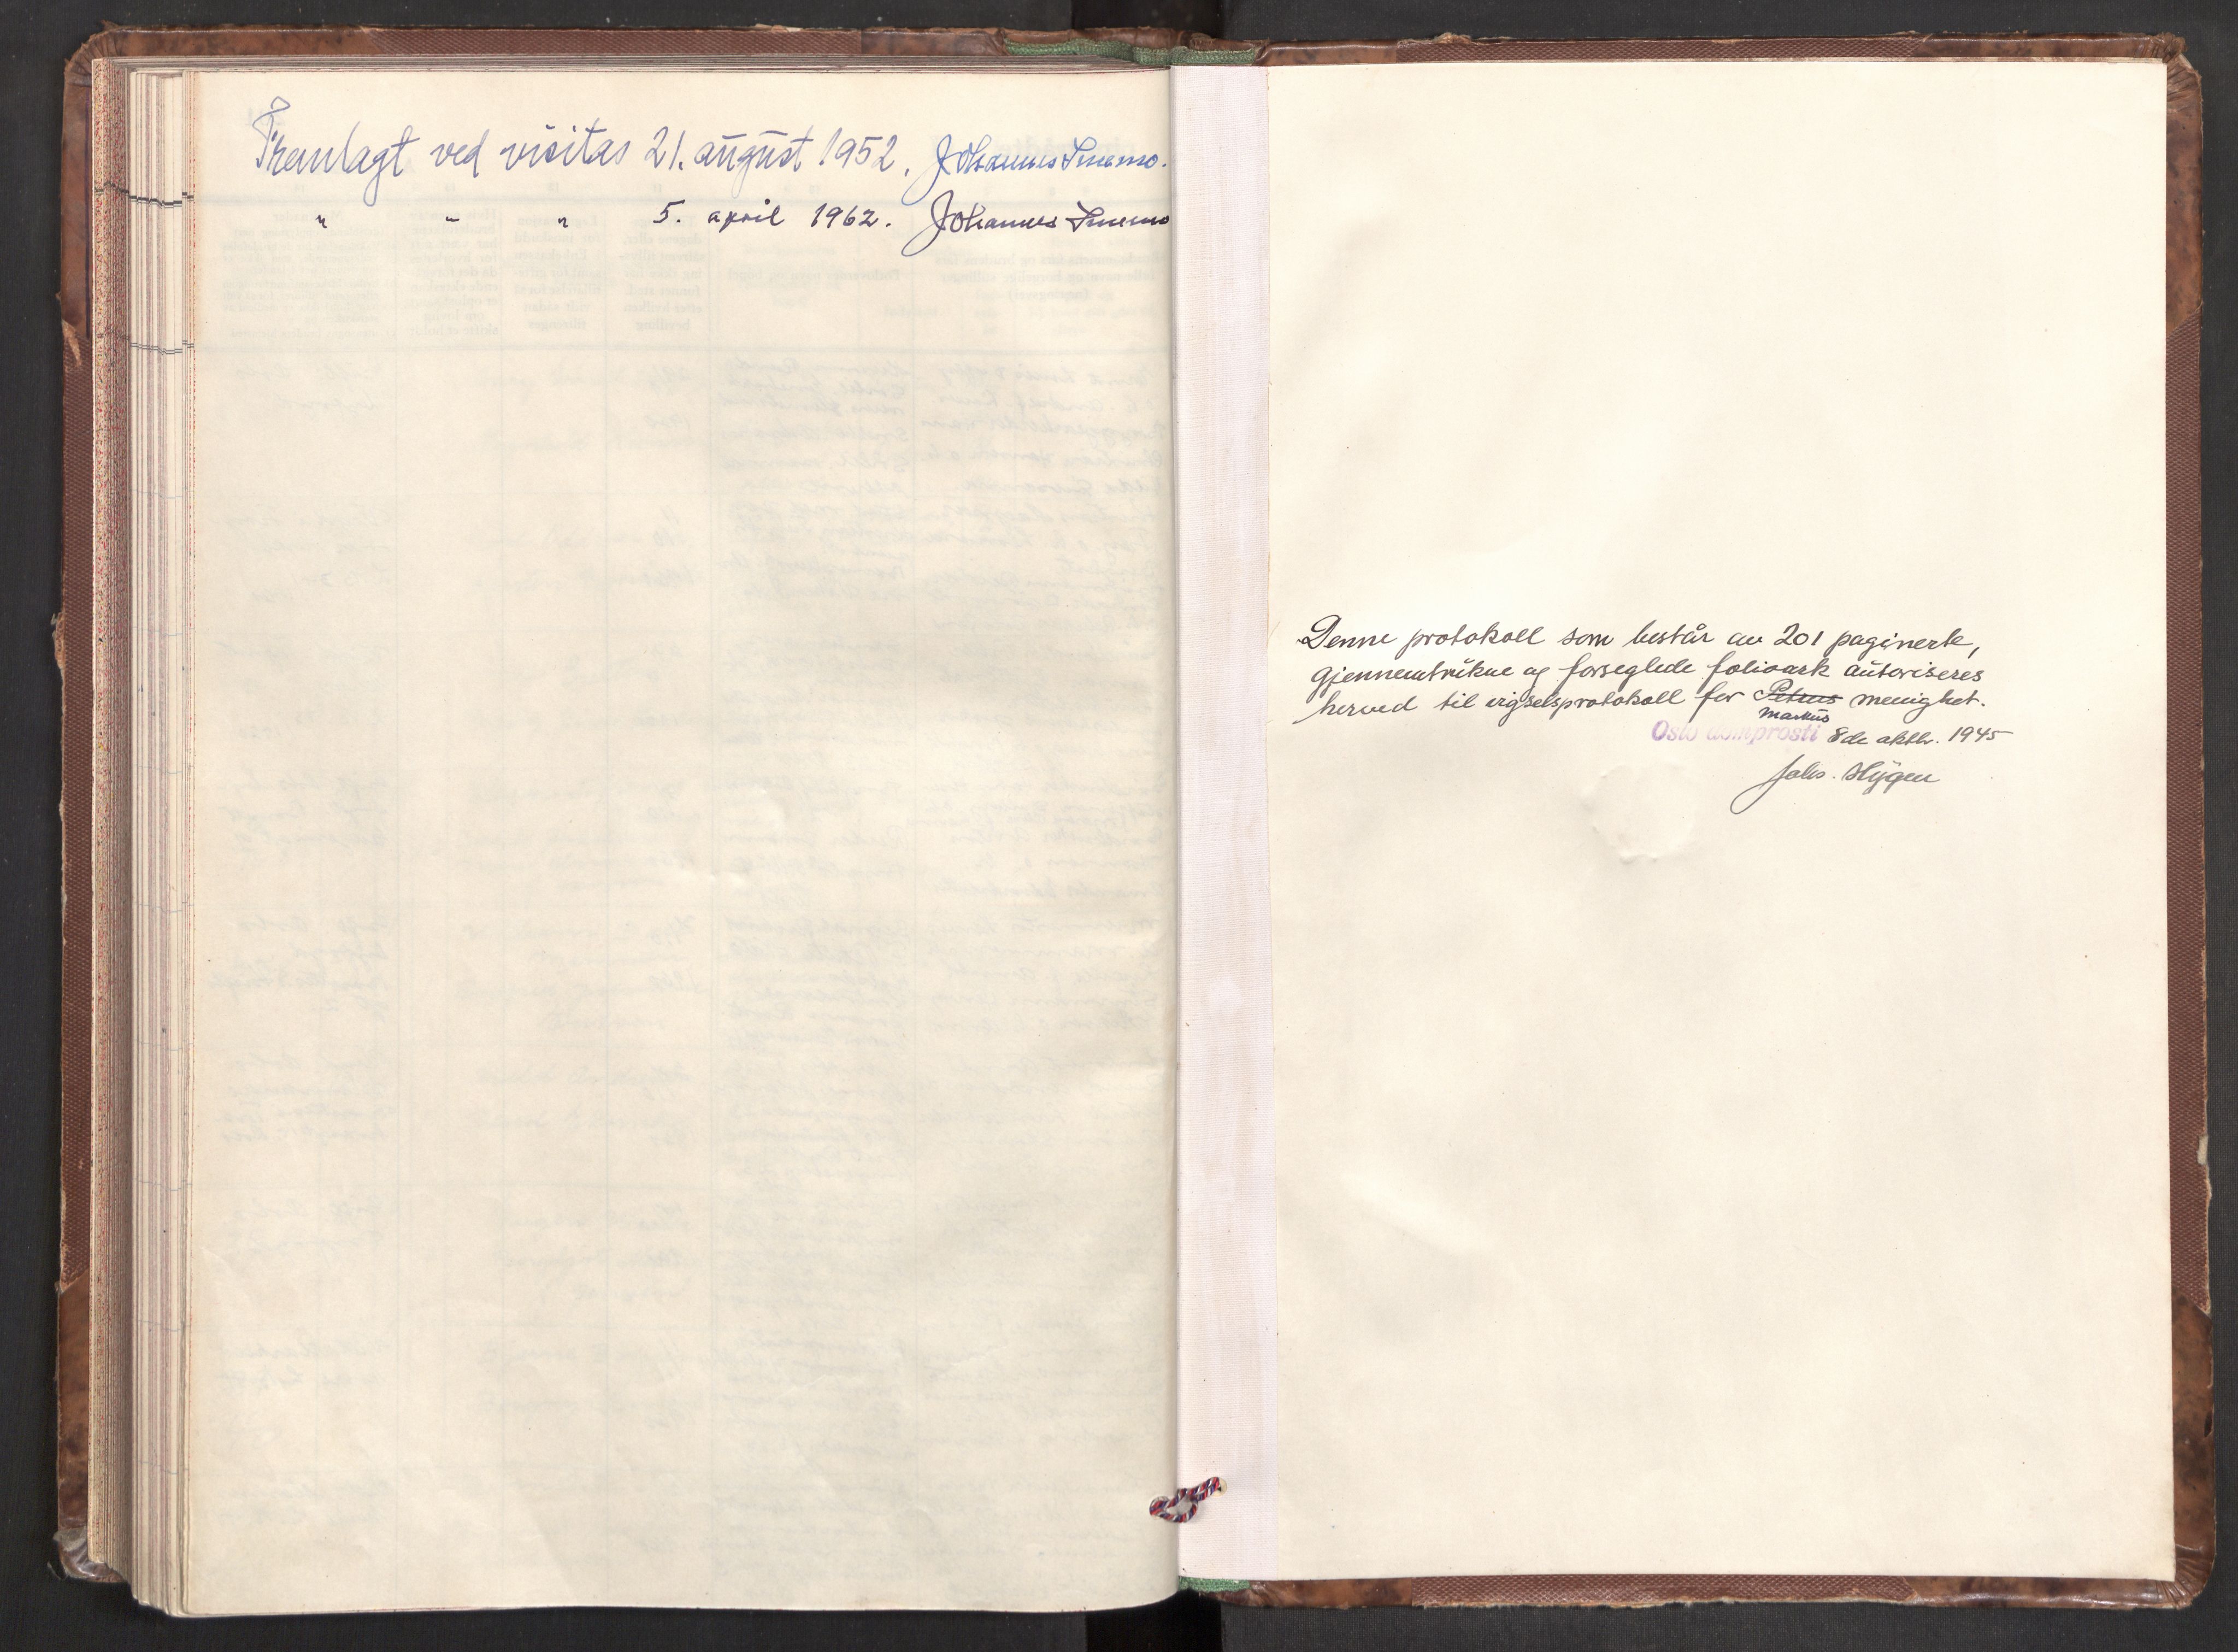 Fremlagt ved visitas 21. august 1952. Johannes Smemo.
" " " 5. april 1962. Johannes Smemo
Denne protokoll som består av 201 paginerte,
gjennemtrukne og forseglede folioark autoriseres
herved til vigselsprotokoll for Petrus menighet.
Markus
Oslo domprosti 8de oktbr. 1945
Johs. Hygen